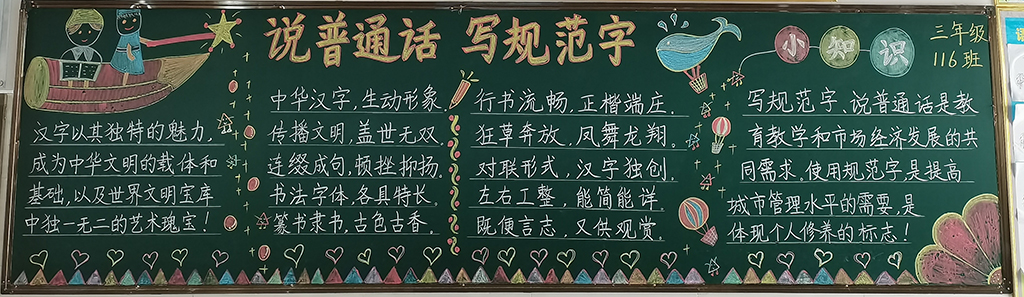 说普通话 写规范字
小知识
三年级
116班
汉字以其独特的魅力，
成为中华文明的载体和
基础，以及世界文明宝库
中独一无二的艺术瑰宝！
中华汉字，生动形象。
传播文明，盖世无双。
连缀成句，顿挫抑扬。
书法字体，各具特长。
篆书隶书，古色古香。
行书流畅，正楷端庄。
狂草奔放，凤舞龙翔。
对联形式，汉字独创。
左右工整，能简能详。
既便言志，又供观赏。
写规范字、说普通话是教
育教学和市场经济发展的共
同需求。使用规范字，是提高
城市管理水平的需要，是
体现个人修养的标志！